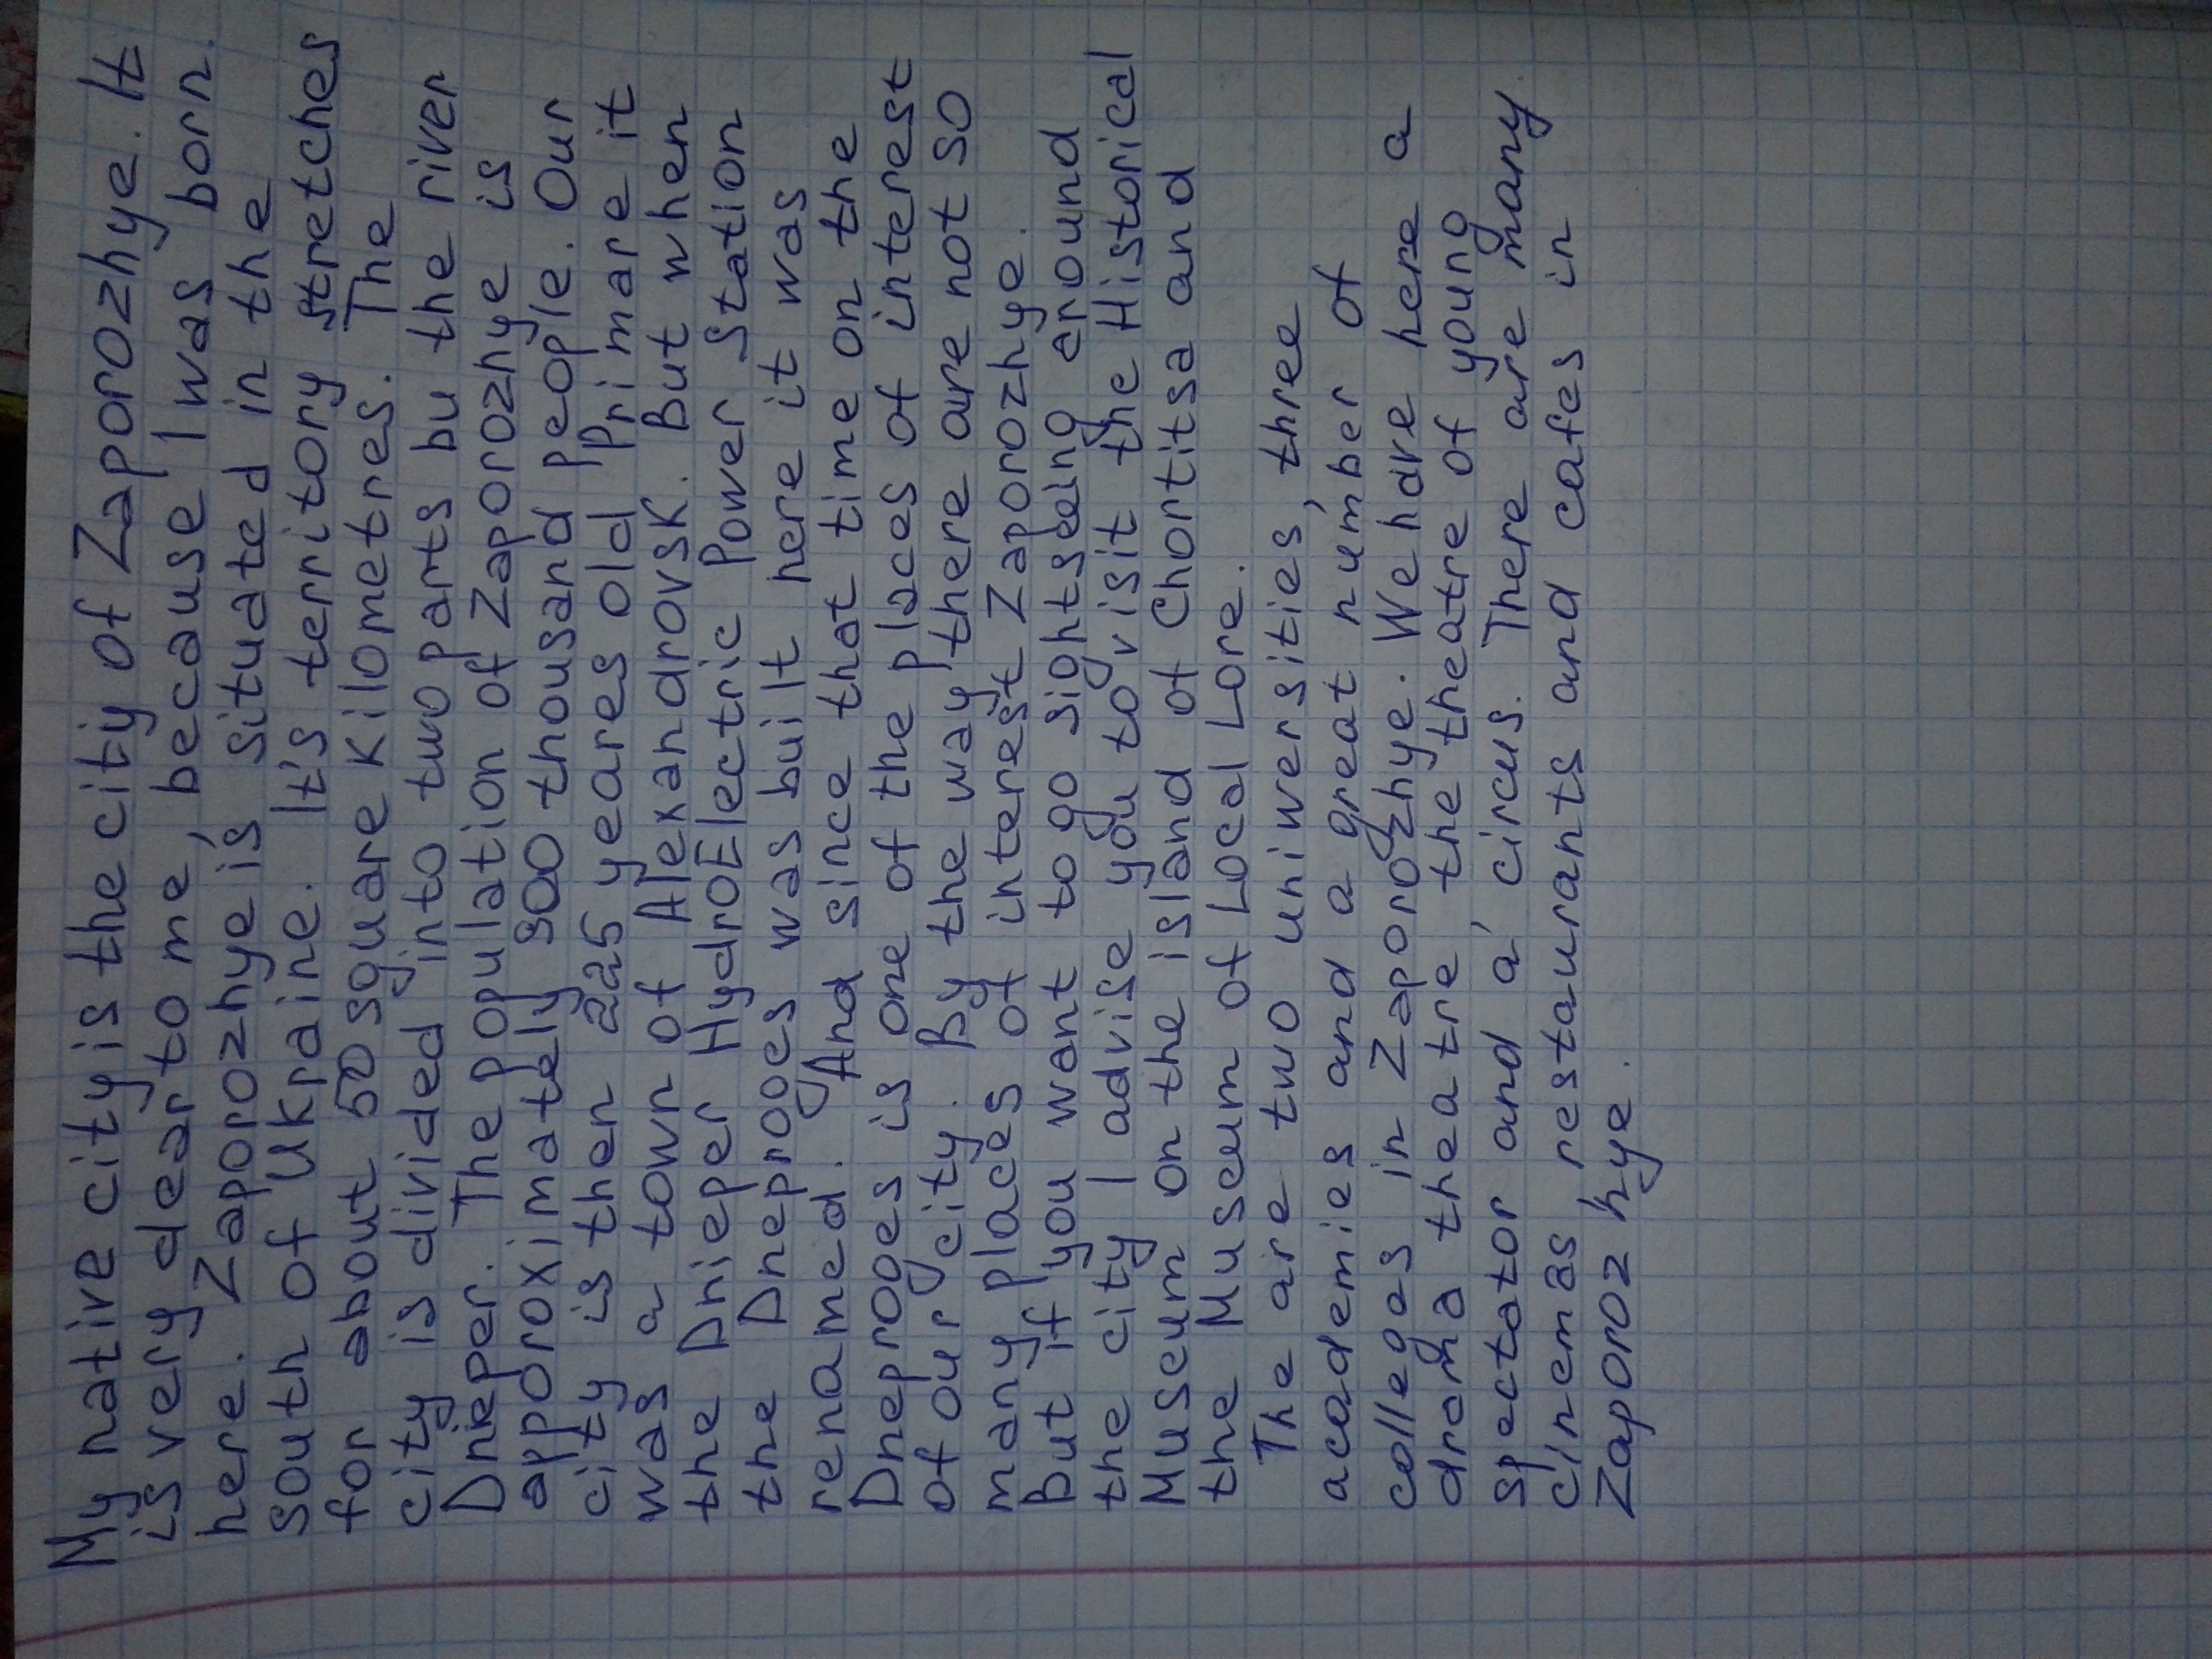 My native city is the city of Zaporozhye. It
is very dear to me, because I was born
here. Zaporozhye is situated in the
south of Ukraine. It's territory stretches
for about 50 square kilometres. The
city is divided into two parts bu the river
Dnieper. The population of Zaporozhye is
approximately 900 thousand people. Our
city is then 225 yeares old Primare it
was a town of Alexandrovsk. But when
the Dnieper HydroElectric Power Station
the Dneproges was built here it was
renamed. And since that time on the
Dneproges is one of the places of interest
of our city. By the way there are not so
many places of interest Zaporozhye.
But if you want to go sightseeing around
the city I advise you to visit the Historical
Museum on the island of Chortitsa and
the Museum of Local Lore.
The are two universities, three
academies and a great number of
colleges in Zaporozhye. We have here a
drama theatre the theatre of young
spectator and a circus. There are many
cinemas restaurants and cafes in
Zaporozhye.